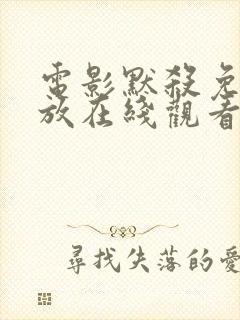 電影默殺免
放在綫觀看
尋找失落的愛